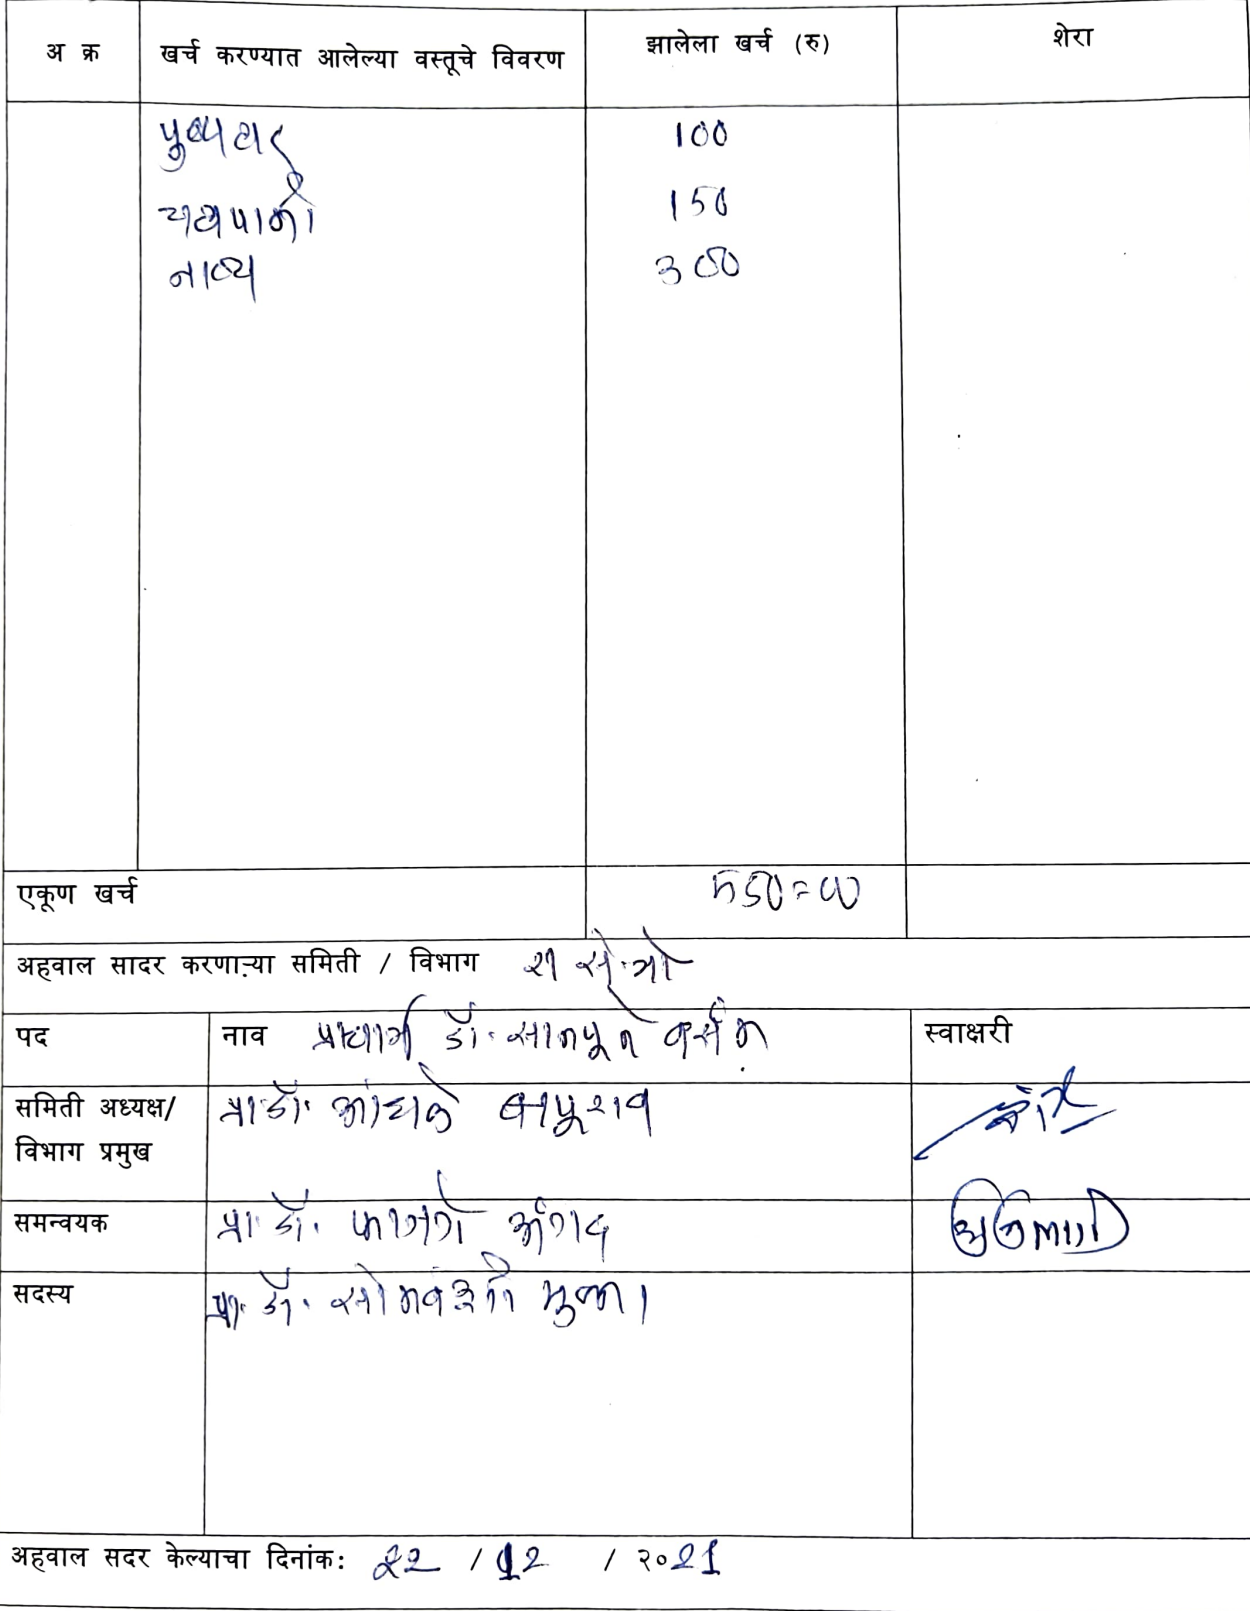 अ क्र खर्च करण्यात आलेल्या वस्तूचे विवरण झालेला खर्च (रु) शेरा
100
चहापानी 150
300
एकूण खर्च 550=00
अहवाल सादर करणाऱ्या समिती / विभाग रा से.यो
पद नाव प्राचार्य डॉ. स्वाक्षरी
समिती अध्यक्ष/ प्रा.डॉ. आंधळे बापूराव
विभाग प्रमुख
समन्वयक प्रा. डॉ. फाजगे अंगद
सदस्य प्रा. डॉ. सोमवंशी मुक्ता
अहवाल सदर केल्याचा दिनांक: 22 / 12 / २०21